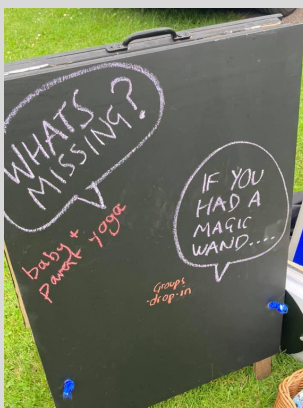 WHATS
MISSING?
IF YOU
HAD A
MAGIC
WAND....
baby +
parent yoga
Groups
-drop-in